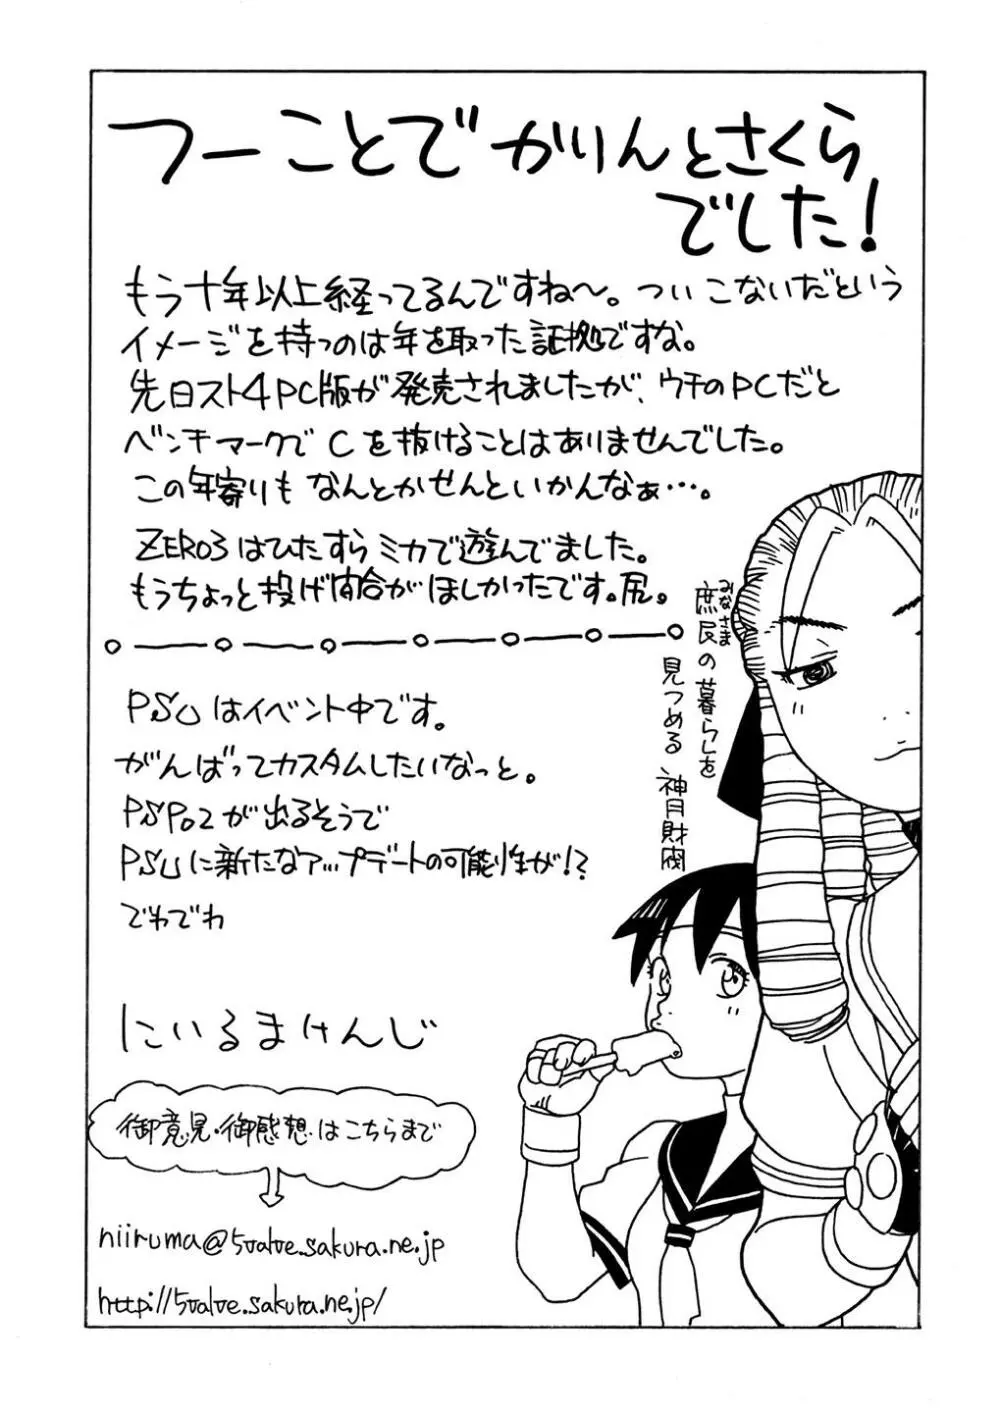 つーことでかりんとさくら
でした!
もう十年以上経ってるんですね〜。ついこないだという
イメージを持つのは年を取った証拠ですな。
先日スト4PC版が発売されましたが、ウチのPCだと
ベンチマークでCを抜けることはありませんでした。
この年寄りもなんとかせんといかんなぁ…。
ZERO3はひたすらミカで遊んでました。
もうちょっと投げ間合がほしかったです。尻。
庶民の暮らしを
みなさま
見つめる神月財閥
PSUはイベント中です。
がんばってカスタムしたいなっと。
PSPo2が出るそうで
PSUに新たなアップデートの可能性が!?
でわでわ
にいるまけんじ
御意見・御感想はこちらまで
niiruma@5valve.sakura.ne.jp
http://5valve.sakura.ne.jp/